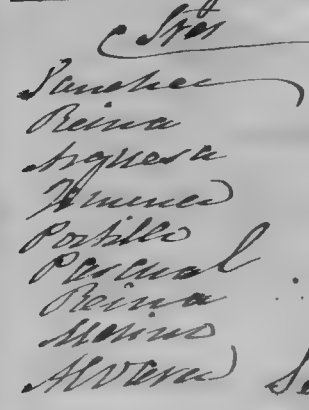 Sres
Sanchez
Reina
Arguesa
Ximenez
Portillo
Pascual
Reina
Merino
Alvarez
Se